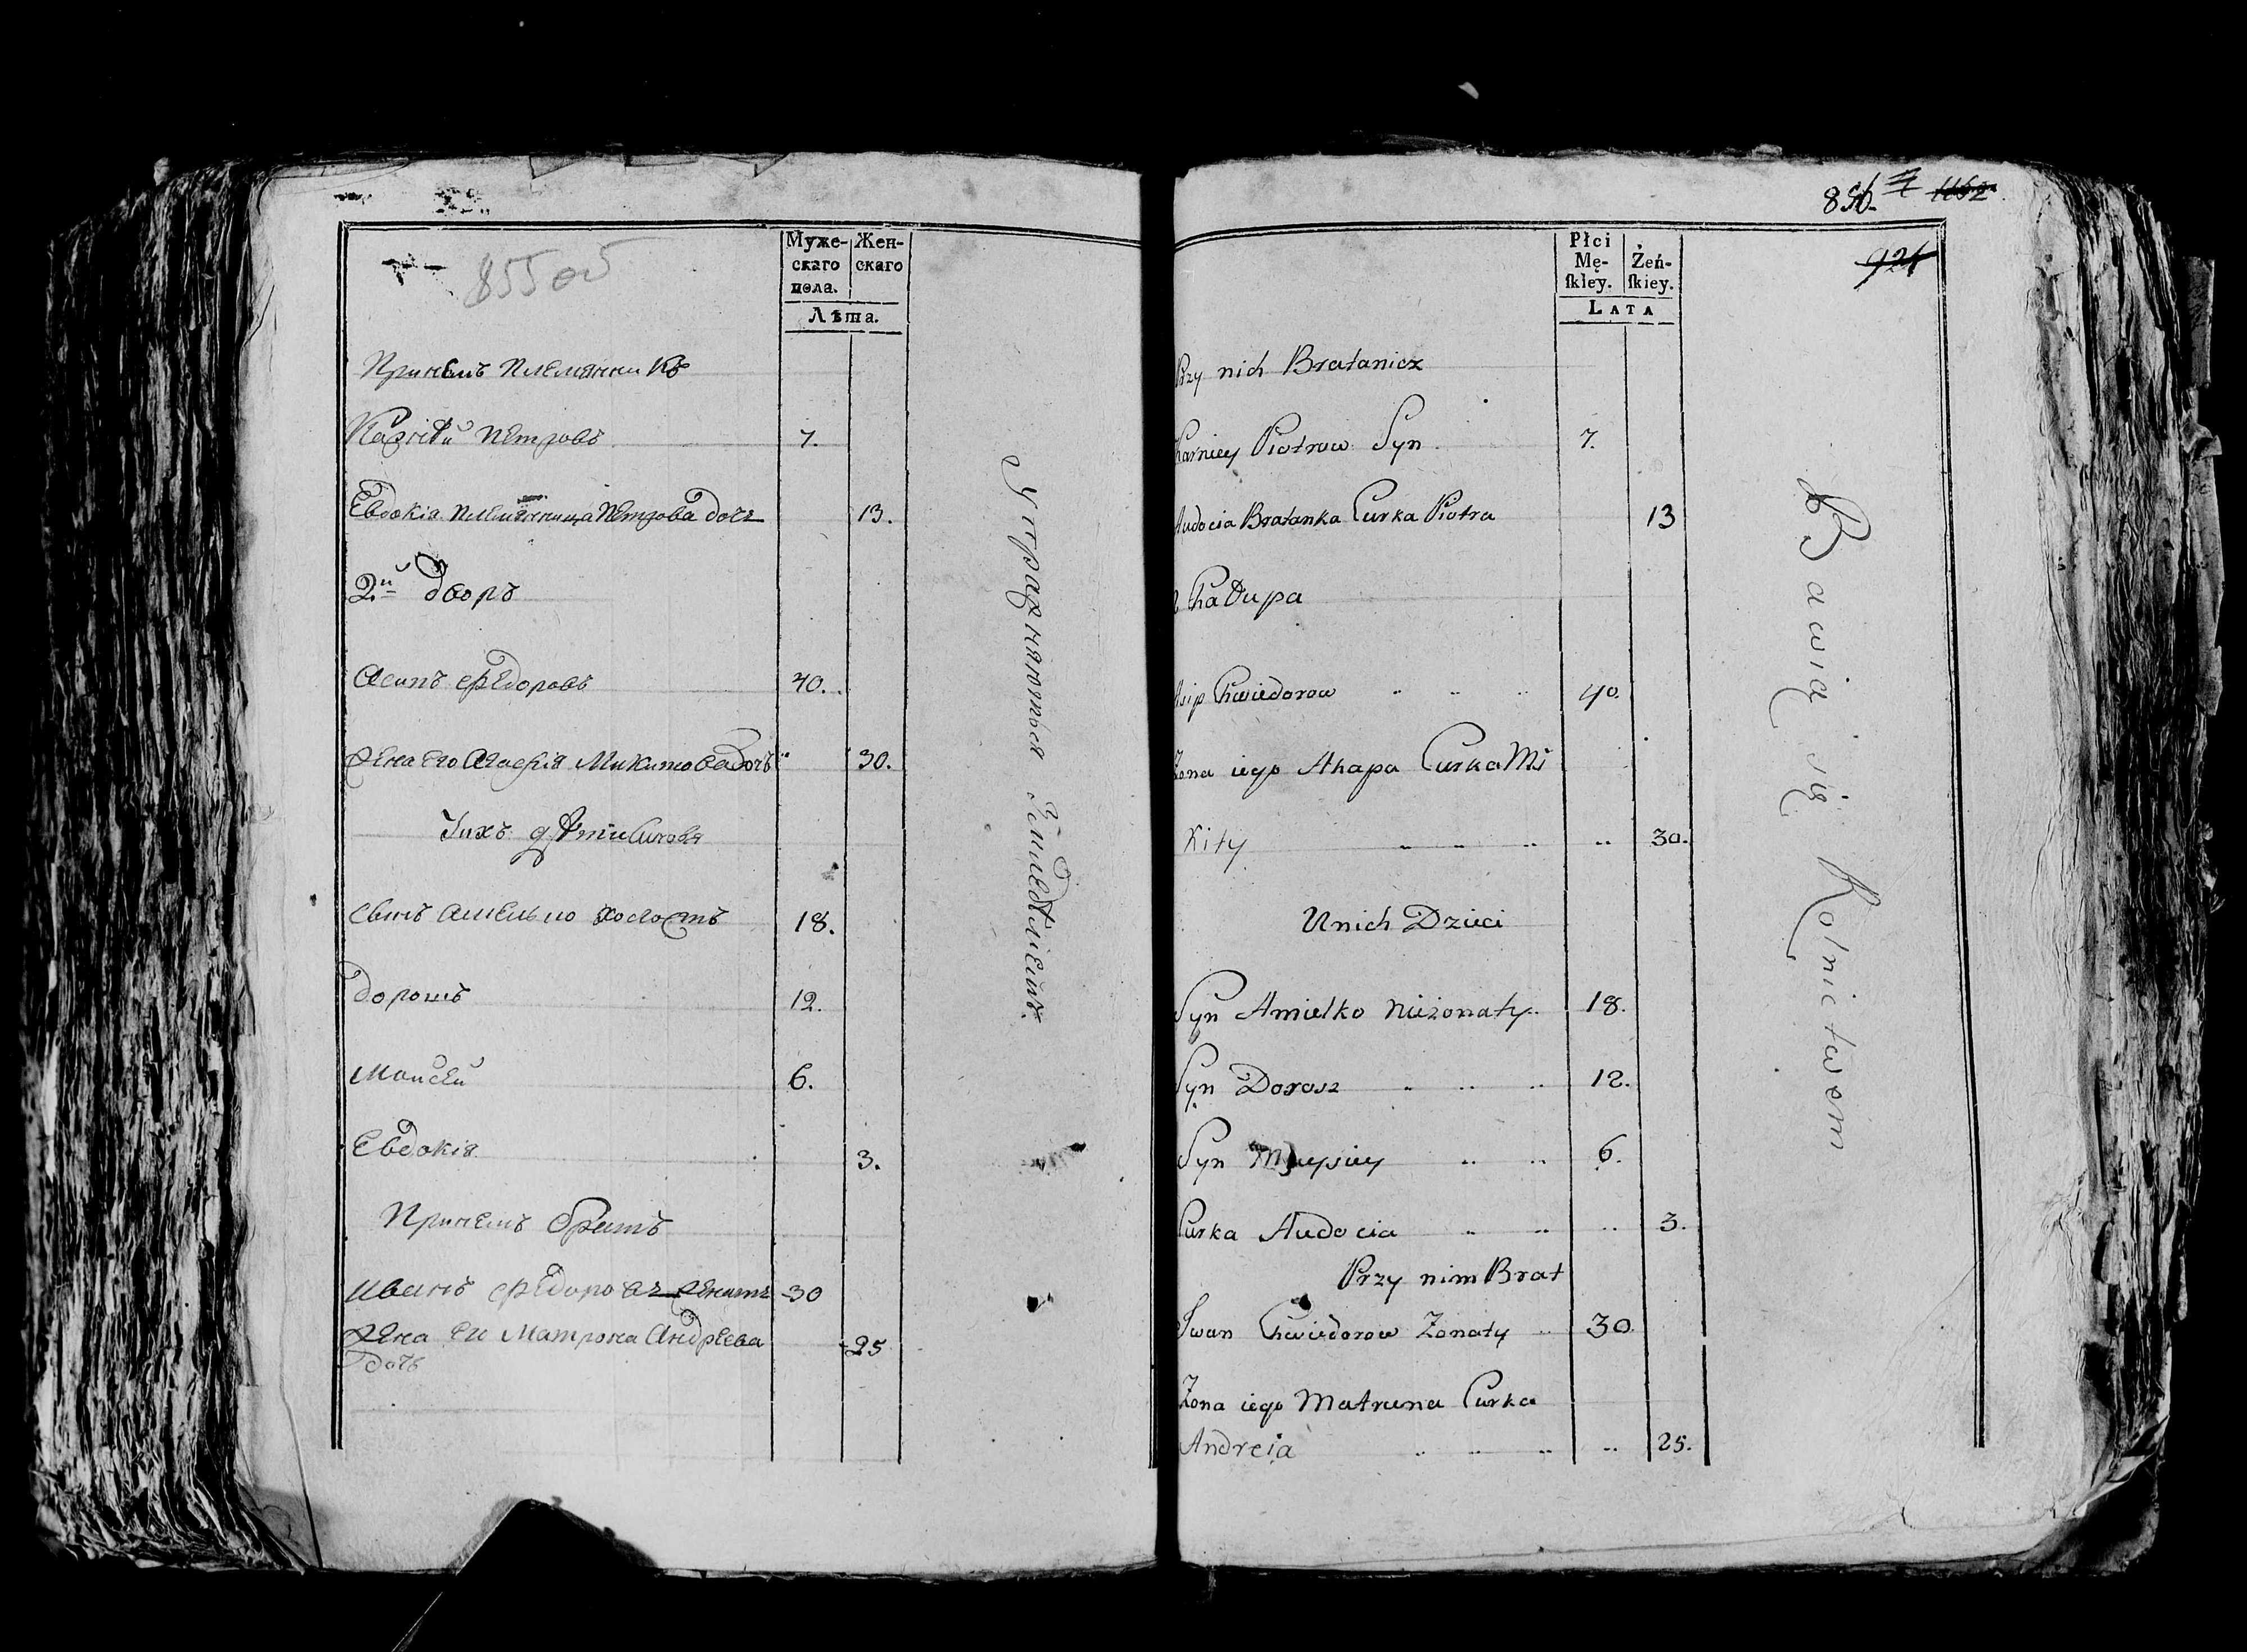 855 об
Муже-
скаго
пола.
Жен-
скаго
Лѣта.
При немъ племянникъ
Карнѣй Петровъ 7.
Евдокія племянница Петрова дочь 13.
2й дворъ
Асипъ Федоровъ 40.
Жена его Агафія Микитова дочь 30.
У ихъ дѣти
Сынъ Амельио холостъ 18.
Дорошъ 12.
Мойсей 6.
Евдокія 3.
При немъ братъ
Иванъ Федоровъ женатъ 30
Жена его Матрона Андреева 25
дочь
Упражняются земледѣліемъ.
856. 1152
921
Płci
Mę-
ſkiey.
Żeń-
ſkiey.
LATA
Przy nich Bratanicz
Charniey Piotrow Syn 7.
Audocia Bratanka Curka Piotra 13
2 Chałupa
Asip Chwiedorow 40.
Zona iego Ahapa Curka Mi
Kity 30.
U nich Dzieci
Syn Amielko Nieżonaty 18.
Syn Dorosz 12.
Syn Moysiey 6.
Curka Audocia 3.
Przy nim Brat
Iwan Chwiedorow Zonaty 30.
Zona iego Matruna Curka
Andreia 25.
Bawią się Rolnictwem